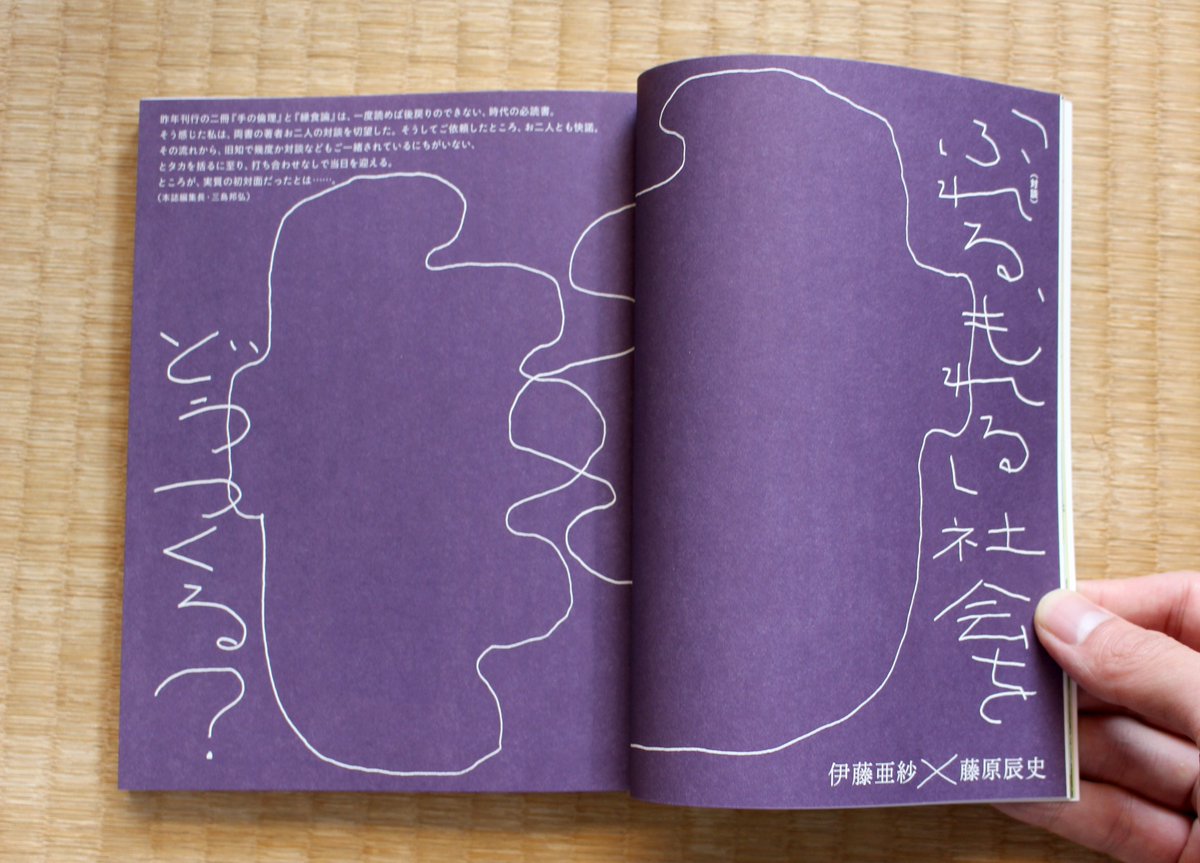 （対談）
ふれる、もれる社会を
どうつくる？
伊藤亜紗×藤原辰史
昨年刊行の二冊『手の倫理』と『縁食論』は、一度読めば後戻りのできない、時代の必読書。
そう感じた私は、両書の著者お二人の対談を切望した。そうしてご依頼したところ、お二人とも快諾。
その流れから、旧知で幾度か対談などもご一緒されているにちがいない、
とタカを括るに至り、打ち合わせなしで当日を迎える。
ところが、実質の初対面だったとは……。
（本誌編集長・三島邦弘）